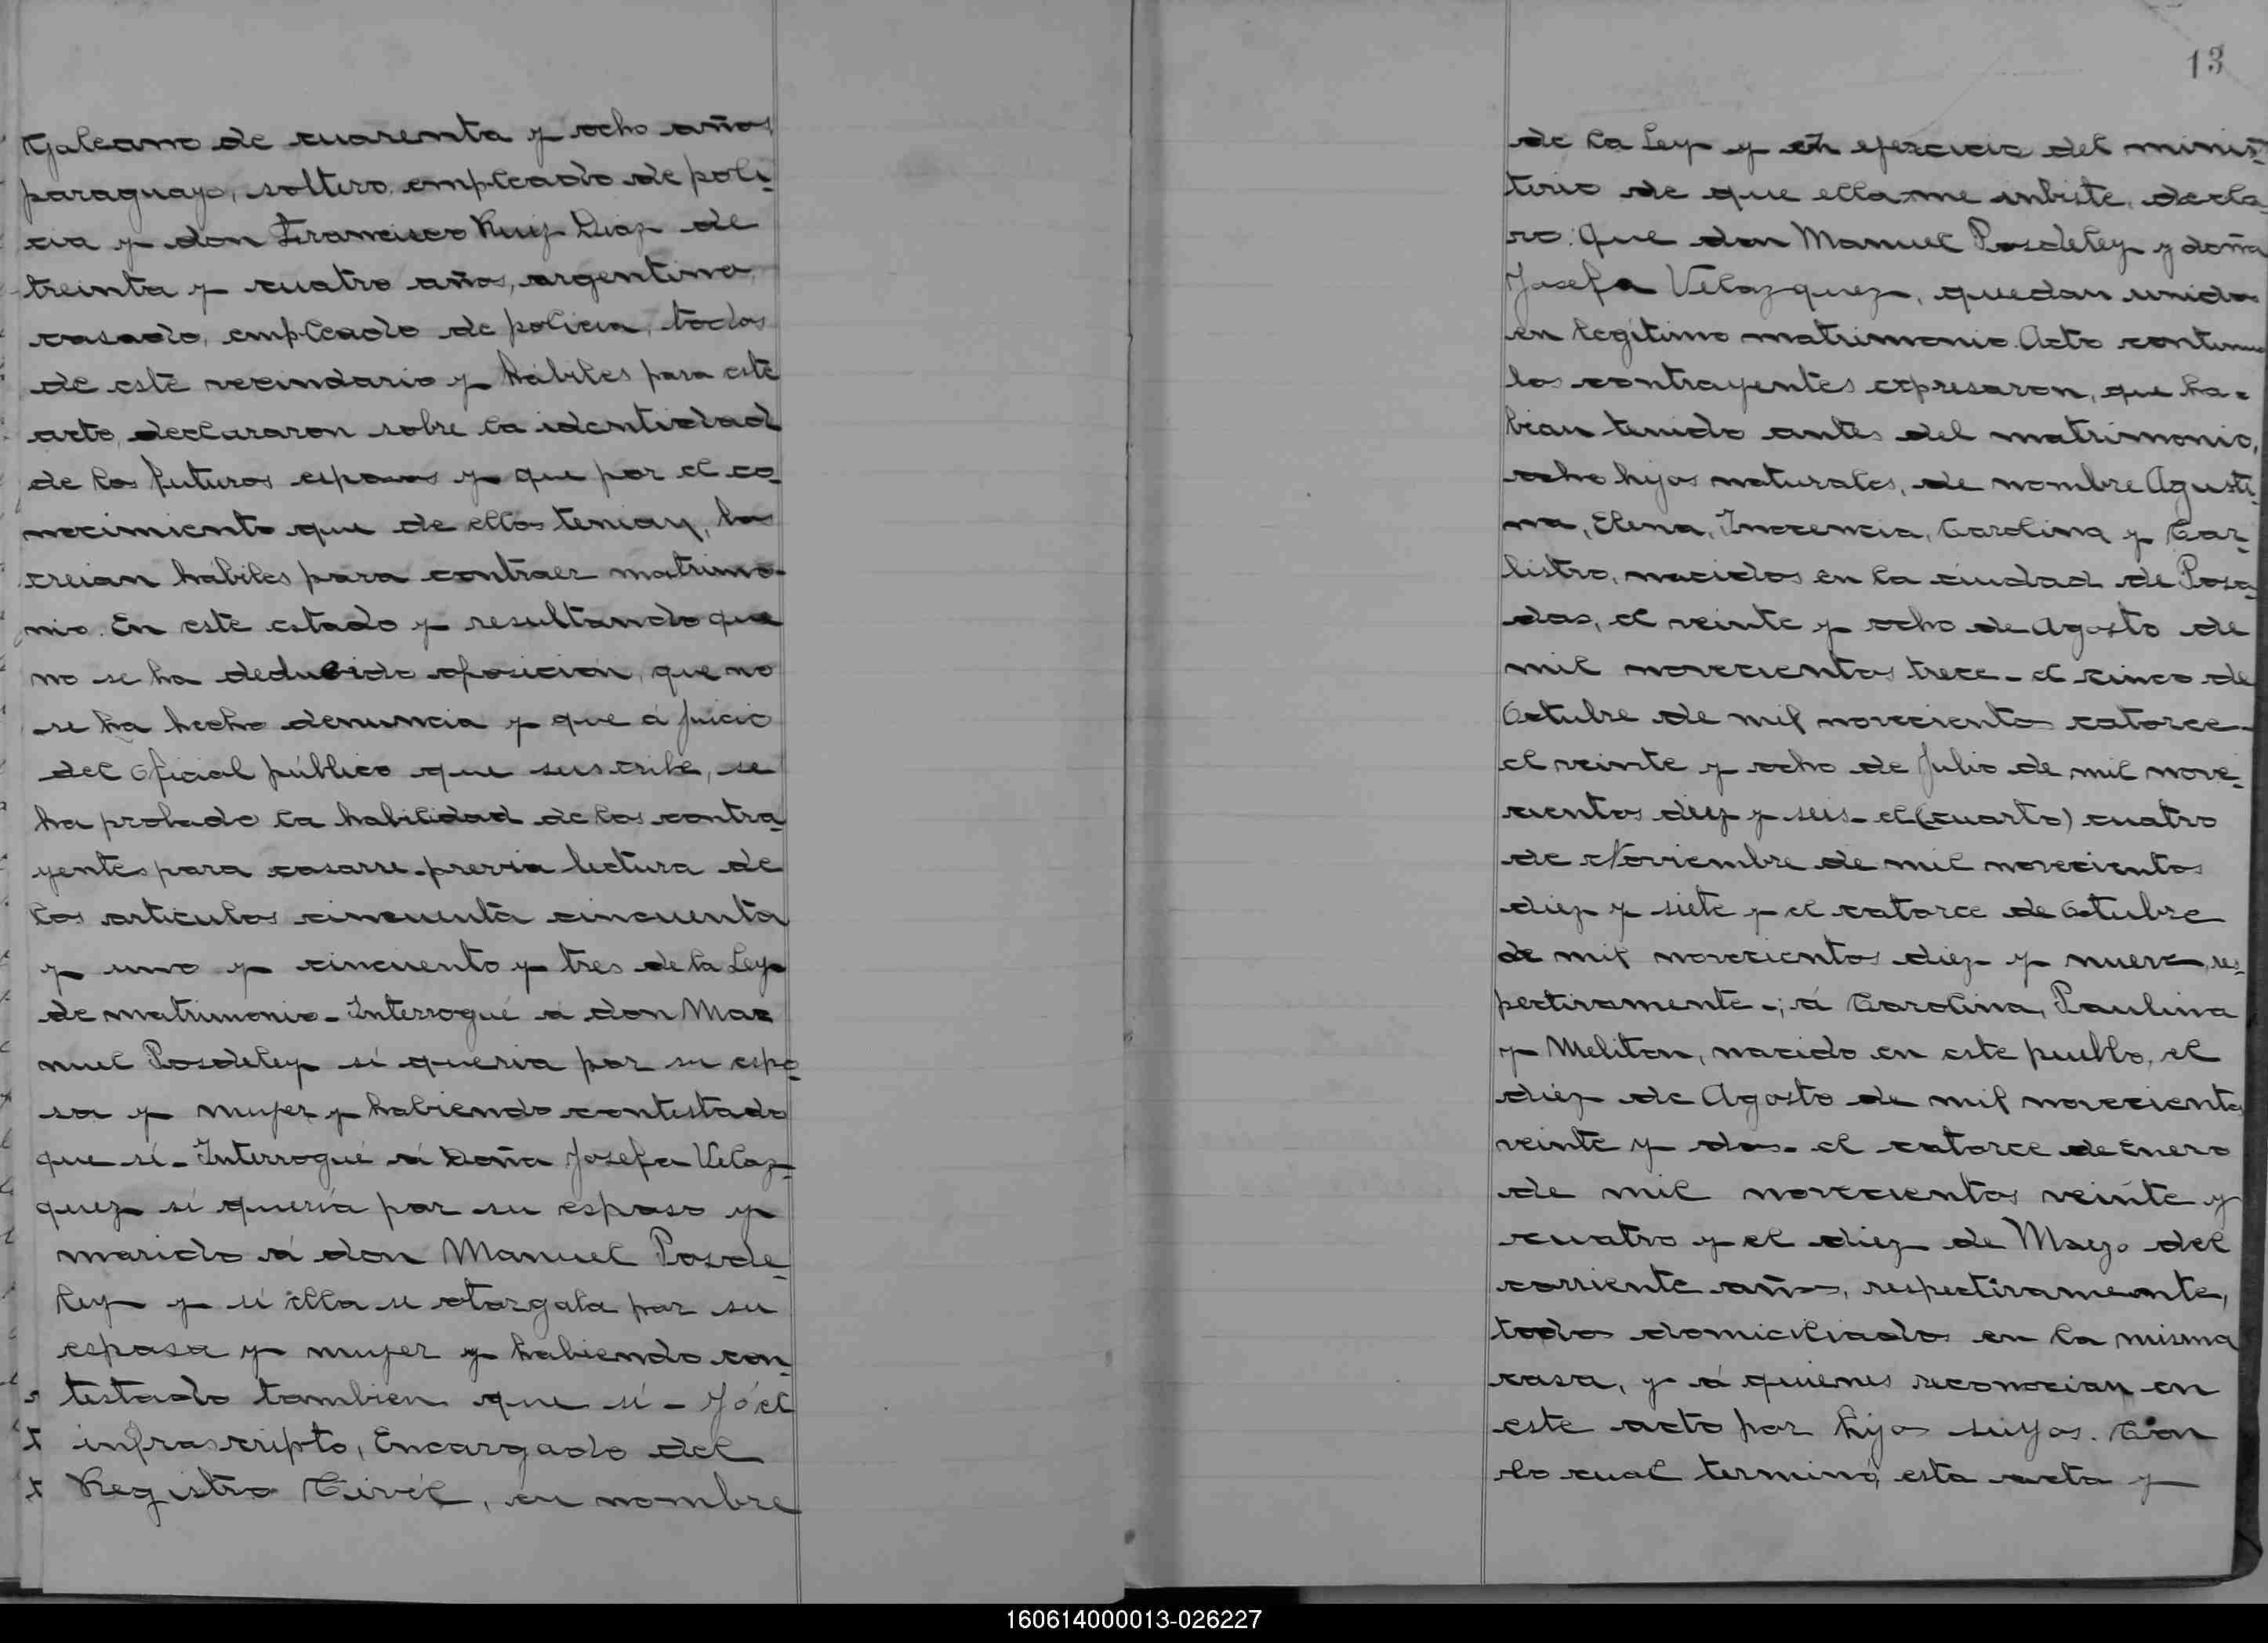 Galeano de cuarenta y ocho años
paraguayo, soltero, empleado de poli-
cia y don Francisco Ruiz Diaz de
treinta y cuatro años, argentino,
casado, empleado de policia, todos
de este vecindario y hábiles para este
acto, declararon sobre la identidad
de los futuros esposos y que por el co-
nocimiento que de ellos tenian, los
creian hábiles para contraer matrimo-
nio. En este estado y resultando que
no se ha deducido oposición, que no
se ha hecho denuncia y que á juicio
del Oficial público que suscribe, se
ha probado la habilidad de los contra-
yentes para casarse-previa lectura de
los articulos cincuenta cincuenta
y uno y cincuento y tres de la Ley
de matrimonio-Interrogué á don Ma
nuel Posdeley sí queria por su espo-
sa y mujer y habiendo contestado
que sí-Interrogué á Doña Josefa Velaz-
quez sí quería por su esposo y
marido á don Manuel Posde-
ley y sí ella se otorgaba por su
esposa y mujer y habiendo con-
testado tambien que sí - Yó el
infrascripto, Encargado del
Registro Civíl, en nombre
13
de la Ley y en ejercicio del minis-
terio de que ella me inbiste, decla
ro: Que don Manuel Posdeley y doña
Josefa Velazquez, quedan unidos
en legítimo matrimonio. Acto continuo
los contrayentes expresaron, que ha-
bian tenido antes del matrimonio,
ocho hijos naturales, de nombre Agusti-
na, Elena, Inocencia, Carolina y Car-
listro, nacidos en la ciudad de Posa-
das, el veinte y ocho de Agosto de
mil novecientos trece - el cinco de
Octubre de mil novecientos catorce-
el veinte y ocho de Julio de mil nove-
cientos diez y seis - el (cuarto) cuatro
de Noviembre de mil novecientos
diez y siete y el catorce de Octubre
de mil novecientos diez y nueve, res-
pectivamente-; á Carolina, Paulina
y Meliton, nacido en este pueblo, el
diez de Agosto de mil novecientos
veinte y dos - el catorce de Enero
de mil novecientos veinte y
cuatro y el diez de Mayo del
corriente año, respectivamente,
todos domiciliados en la misma
casa, y á quienes reconocian en
este acto por hijos suyos. Con
lo cual terminó esta acta y
160614000013-026227